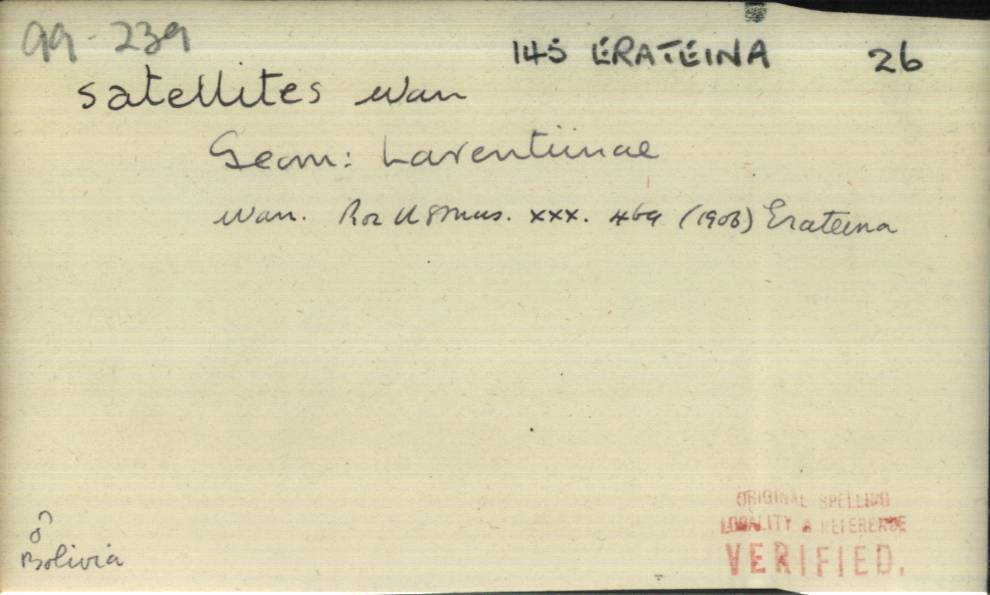 99-239
145 ERATEINA 26
satellites Warr
Geom: Larentiinae
Warr. Proc US Mus. xxx. 469 (1906) Erateina
♂
Bolivia
ORIGINAL SPELLING
LOCALITY & REFERENCE
VERIFIED.